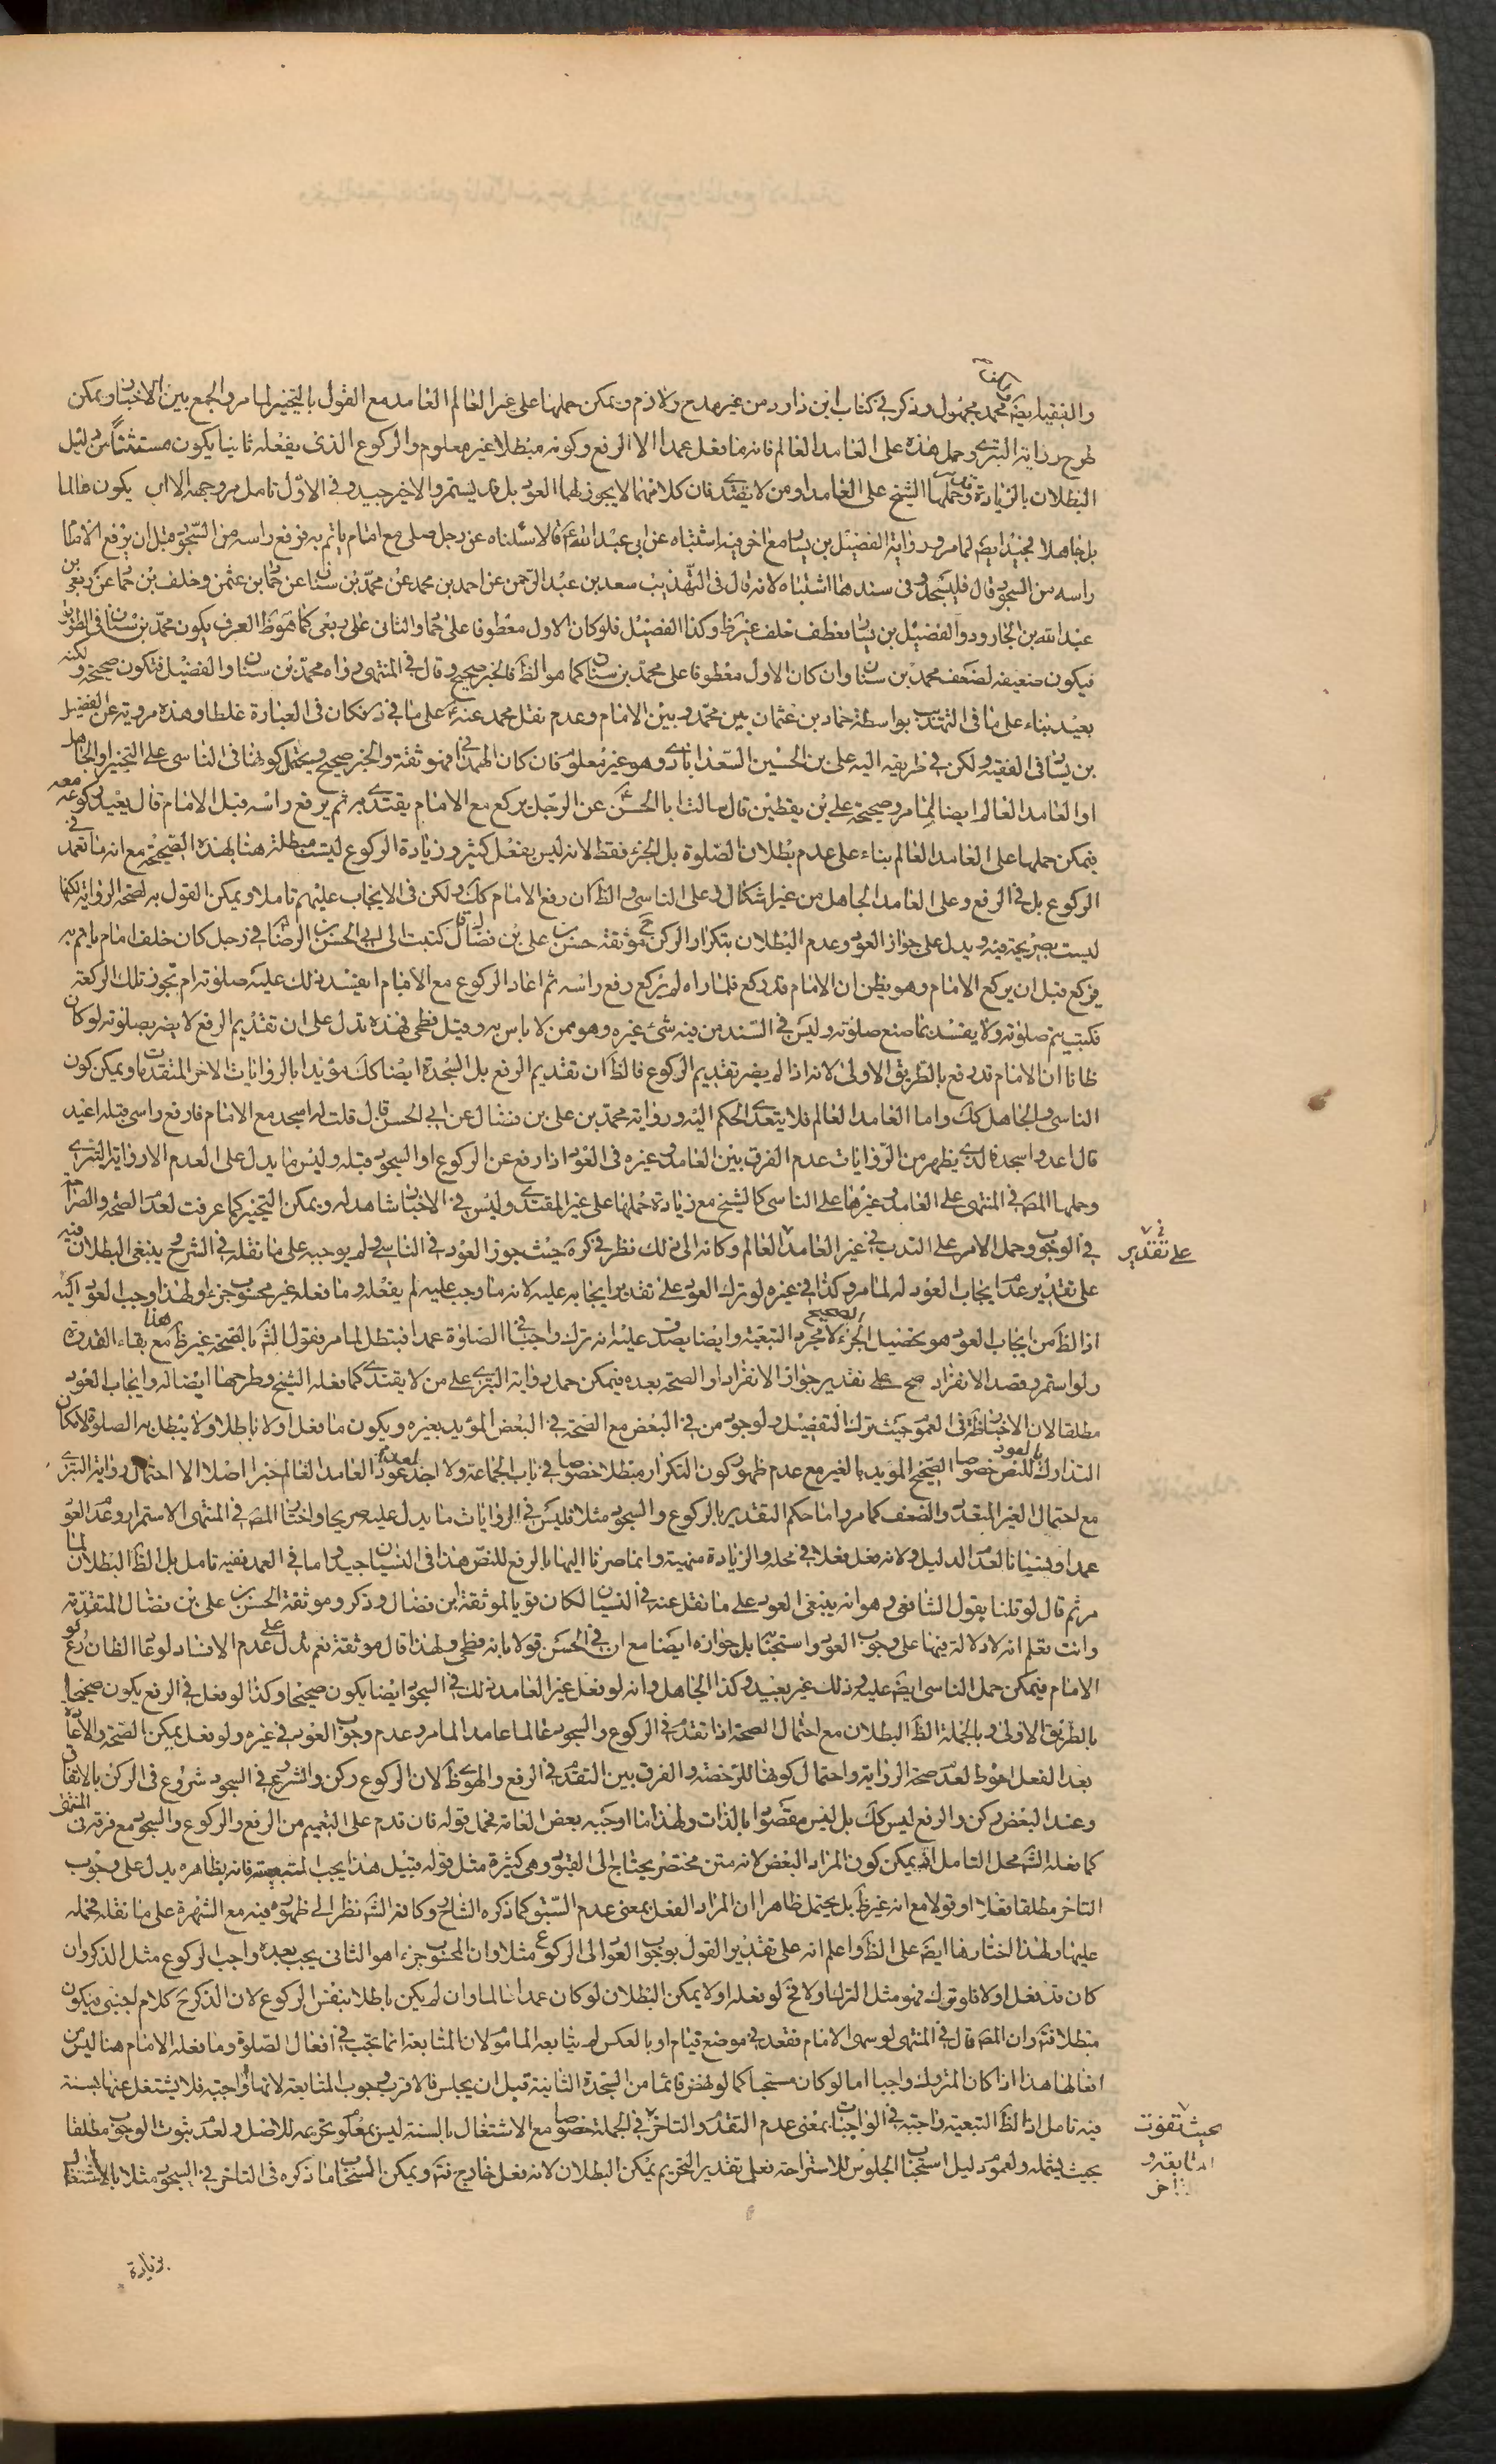 والفقيه ايضا محمد مجهول وذكر في كتاب ابن داود من غير مدح ولا ذم ويمكن حملها على غير العالم العامد مع القول بالتخيير لما مر والجمع بين الاخبار ويمكن
طرح رواية البتري وحمل هذه على العامد العالم فانه ما فعل عمدا الا الرفع وكونه مبطلا غير معلوم والركوع الذي يفعله ثانيا يكون مستثنى من دليل
البطلان بالزيادة وحملها الشيخ على العامد او من لا يقتدي فان كلا منهما لا يجوز لهما العود بل قد يستمر والاخير جيد وفي الاول تامل مر وجهه الا ان يكون عالما
بل جاهلا فجيد ايضا لما مر ورواية الفضيل بن يسار مع اخر فيه اشتباه عن ابي عبد الله ع قالا سئلناه عن رجل صلى مع امام ياتم به فرفع راسه من السجود قبل ان يرفع الامام
راسه من السجود قال فليسجد وفي سندها اشتباه لانه قال في التهذيب سعد بن عبد الرحمن عن احمد بن محمد عن محمد بن سنان عن حماد بن عثمن وخلف بن حماد عن ربعي بن
عبد الله بن الجارود والفضيل بن يسار فعطف خلف غير ظ وكذا الفضيل فلو كان الاول معطوفا على حماد والثاني على ربعي كما هو ظ العرف يكون محمد بن سنان في الطريق
فيكون ضعيفه لضعف محمد بن سنان وان كان الاول معطوفا على محمد بن سنان كما هو الظ فالخبر صحيح وقال في المنتهى رواه محمد بن سنان والفضيل فتكون صحيحة ولكنه
بعيد بناء على ما في التهذيب بواسطة حماد بن عثمان بين محمد وبين الامام وعدم نقل محمد عنه ع على ما في فكان في العبارة غلطا وهذه مروية عن الفضيل
بن يسار في الفقيه ولكن في طريقه اليه علي بن الحسين السعدابادي وهو غير معلوم فان كان الهمداني فهو ثقة والخبر صحيح ويحتمل كونها في الناسي على التخيير او الجاهل
او العامد العالم ايضا لما مر وصحيحة علي بن يقطين قال سالت ابا الحسن ع عن الرجل يركع مع الامام يقتدي به ثم يرفع راسه قبل الامام قال يعيد ركوعه معه
فيمكن حملها على العامد العالم بناء على عدم بطلان الصلوة بل الجزء فقط لانه ليس بفعل كثير وزيادة الركوع ليست مبطلة هنا بهذه الصحيحة مع انه ما تعمد في
الركوع بل في الرفع وعلى العامد الجاهل من غير اشكال وعلى الناسي والظ ان رفع الامام كك ولكن في الايجاب عليهم تاملا ويمكن القول به لصحة الرواية لكنها
ليست بصريحة فيه ويدل على جواز العود وعدم البطلان بتكرار الركن ح موثقة حسن بن علي بن فضال قال كتبت الى ابي الحسن الرضا ع في رجل كان خلف امام ياتم به
فركع قبل ان يركع الامام وهو يظن ان الامام قد ركع فلما راه لم يركع رفع راسه ثم اعاد الركوع مع الامام ايفسد ذلك عليه صلوته ام تجوز تلك الركعة
فكتب يتم صلوته ولا يفسد بما صنع صلوته وليس في السند من فيه شئ غيره وهو ممن لا باس به وقيل فطحي فهذه تدل على ان تقديم الرفع لا يضر بصلوته لو كان
ظانا ان الامام قد رفع بالطريق الاولى لانه اذا لم يضر تقديم الركوع فالظ ان تقديم الرفع بل السجدة ايضا كك مؤيدا بالروايات الاخر المتقدمات ويمكن كون
الناسي والجاهل كك واما العامد العالم فلا يتعدى الحكم اليه ورواية محمد بن علي بن فضال عن ابي الحسن ع قال قلت له اسجد مع الامام فارفع راسي قبله اعيد
قال اعد واسجد فالذي يظهر من الروايات عدم الفرق بين العامد وغيره في العود اذا رفع عن الركوع او السجود قبله وليس ما يدل على العدم الا رواية البتري
وحملها المص في المنتهى على العامد وغيرها على الناسي كالشيخ مع زيادة حملها على غير المقتدي وليس في الاخبار شاهد له ويمكن التخيير كما عرفت لعدم الصحة والصراحة
في الوجوب وحمل الامر على الندب في غير العامد العالم وكانه الى ذلك نظر في كرة حيث جوز العود في الناسي ولم يوجبه على ما نقله في الشرح ينبغي البطلان فيه
على تقدير عدم ايجاب العود له لما مر وكذا في غيره لو ترك العود على تقدير ايجابه عليه لانه ما وجب عليه لم يفعله وما فعله غير محسوب جزء ولهذا وجب العود اليه
اذ الظ من ايجاب العود هو تحصيل الجزء الصحيح لا مجرد التبعية وايضا يصدق عليه انه ترك واجبا في الصلوة عمدا فتبطل لما مر فقول الش بالصحة هنا غير ظ مع بقاء القدوة
ولو استمر وقصد الانفراد صح على تقدير جواز الانفراد او الصحة بعده فيمكن حمل رواية البتري على من لا يقتدي كما فعله الشيخ وطرحها ايضا له وايجاب العود
مطلقا لان الاخبار ظاهرة في العموم حيث ترك التفصيل ولوجود من في البعض مع الصحة في البعض المؤيد بغيره ويكون ما فعل اولا باطلا ولا يبطل به الصلوة لامكان
التدارك بالعود للنص خصوصا الصحيح المؤيد بالغير مع عدم ظهور كون التكرار مبطلا خصوصا في باب الجماعة ولا اجد لعدم عود العامد العالم خبرا اصلا الا احتمال رواية البتري
مع احتمال الغير المتعدد والضعف كما مر واما حكم التقدير بالركوع والسجود مثلا فليس في الروايات ما يدل عليه صريحا واختار المص في المنتهى الاستمرار وعدم العود
عمدا ونسيانا لعدم الدليل ولانه فعل فعلا في محله والزيادة منهية وانما صرنا اليها بالرفع للنص هذا في النسيان جيد واما في العمد ففيه تامل بل الظ البطلان لما
مر ثم قال لو قلنا بقول الشافعي وهو انه ينبغي العود على ما نقل عنه في النسيان لكان قويا لموثقة ابن فضال وذكر وموثقة الحسن بن علي بن فضال المتقدمة
وانت تعلم انه لا دلالة فيها على وجوب العود واستحبابه بل جوازه ايضا مع ان في الحسن قولا بانه فطحي ولهذا قال موثقة نعم تدل على عدم الافساد لو عاد الظان ركوع
الامام فيمكن حمل الناسي ايضا عليه وذلك غير بعيد وكذا الجاهل وانه لو فعل غير العامد ذلك في السجود ايضا يكون صحيحا وكذا لو فعل في الرفع يكون صحيحا
بالطريق الاولى وبالجملة الظ البطلان مع احتمال الصحة اذا تقدم في الركوع والسجود عالما عامدا لما مر وعدم وجوب العود في غيره ولو فعل يمكن الصحة والاعادة
بعد الفعل احوط لعدم صحة الرواية واحتمال كونها للرخصة والفرق بين التقدم في الرفع والهوي ظ لان الركوع ركن والشروع في السجود شروع في الركن بالاتفاق
وعند البعض ركن والرفع ليس كك بل ليس مقصودا بالذات ولهذا ما اوجبه بعض العامة فحمل قوله فان قدم على التعميم من الرفع والركوع والسجود مع فرقه في المنتهى
كما فعله الش محل التامل اذ يمكن كون المراد البعض لانه متن مختصر يحتاج الى القيود وهي كثيرة مثل قوله قبيل هذا يجب المتبعية فانه بظاهره يدل على وجوب
التاخر مطلقا فعلا او قولا مع انه غير ظ بل يحتمل ظاهرا ان المراد الفعل بمعنى عدم السبق كما ذكره الشارح وكانه الش نظر الى ظهوره فيه مع الشهرة على ما نقله فحمله
عليها ولهذا اختارها ايضا على الظ واعلم انه على تقدير القول بوجوب العود الى الركوع مثلا وان المحسوب جزءا هو الثاني يجب بعده واجب الركوع مثل الذكر وان
كان قد فعل اولا فلو ترك فهو مثل الترك اولا فح لو فعله اولا يمكن البطلان لو كان عمدا عالما وان لم يكن باطلا بنفس الركوع لان الذكر ح كلام اجنبي فيكون
مبطلا فتم وان المص قال في المنتهى لو سهى الامام فقعد في موضع قيام او بالعكس لم يتابعه الماموم لان المتابعة انما تجب في افعال الصلوة وما فعله الامام هنا ليس من
افعالها هذا اذا كان المتروك واجبا اما لو كان مستحبا كما لو نهض قائما من السجدة الثانية قبل ان يجلس فالاقرب وجوب المتابعة لانها واجبة فلا يشتغل عنها بسنة
فيه تامل اذ الظ التبعية واجبة في الواجبات بمعنى عدم التقدم والتاخر في الجملة خصوصا مع الاشتغال بالسنة ليس بمعلوم تحريمه للاصل ولعدم ثبوت الوجوب مطلقا
بحيث يشمله ولعموم دليل استحباب الجلوس للاستراحة فعلى تقدير التحريم يمكن البطلان لانه فعل خارج فتم ويمكن استخراج ما ذكره في التاخر في السجود مثلا بالاشتغال
في
على تقدير
بحيث تفوت
المتابعة و
التاخر
بزيادة